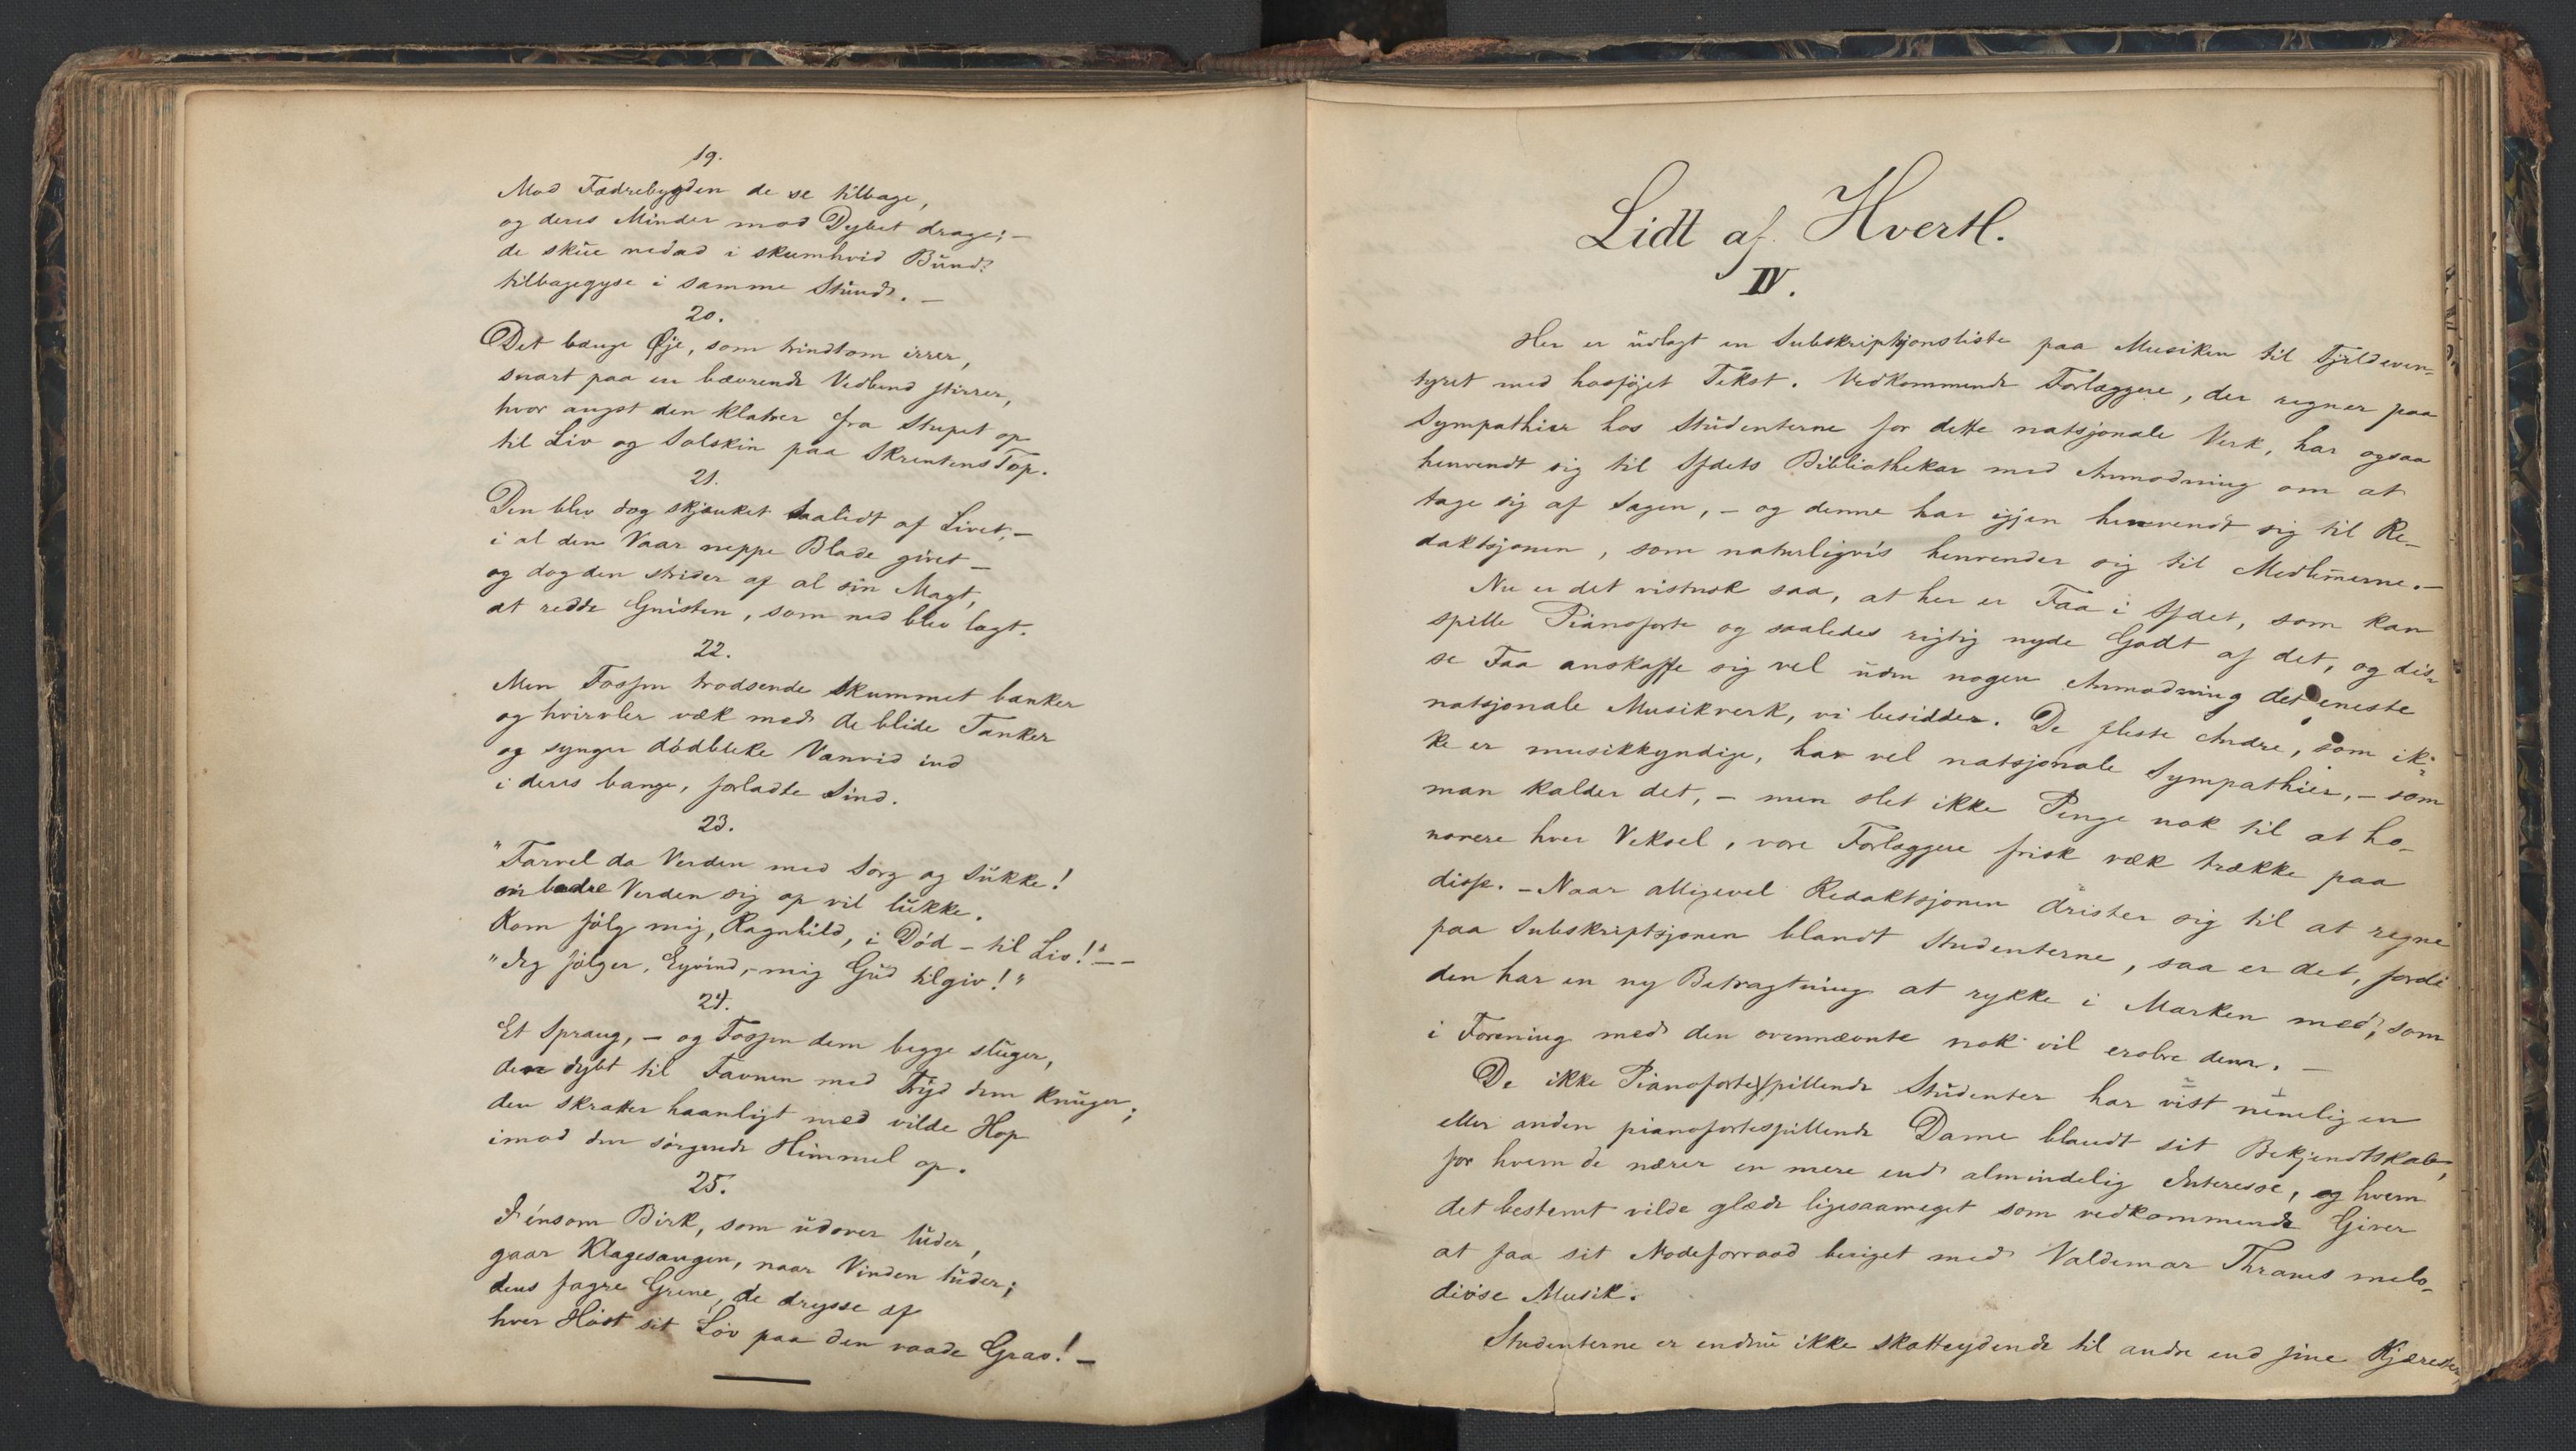 19.
Mod Fædrebygden de se tilbage,
og deres Minder mod Dybet drage; –
de skue nedad i skumhvid Bund?
tilbagegyse i samme Stund. –
20.
Det bange Øje, som trindtom irrer,
snart paa en bævrende Vedbend stirrer,
hvor angst den klatrer fra Stupet op
til Liv og Solskin paa Skrentens Top.
21.
Den blev dog skjænket saalidt af Livet, –
i al den Vaar neppe Blade givet –
og dog den strider af al sin Magt,
at redde Gnisten, som ned blev lagt.
22.
Men Fossen trodsende Skummet banker
og hvirvler væk med de blide Tanker
og synger dødbleke Vanvid ind
i deres bange, forladte Sind.
23.
"Farvel da Verden med Sorg og Sukke!
en bedre Verden sig op vil lukke.
Kom følg mig, Ragnhild, i Død – til Liv!" – –
"Jeg følger, Eyvind, – mig Gud tilgiv!"
24.
Et Sprang, – og Fossen dem begge sluger,
den dybt til Favnen med Fryd dem knuger;
den skratter haanligt med vilde Hop
imod den sørgende Himmel op.
25.
I ensom Birk, som udover luder,
gaar Klagesangen, naar Vinden tuder;
dens fagre Grene, de drysse af
hver Høst sit Løv paa den vaade Grav! –
Lidt af Hvert.
IV.
Her er udlagt en Subskriptsjonsliste paa Musiken til Fjeldeven-
tyret med hosføjet Tekst. Vedkommende Forlæggere, der regner paa
Sympathier hos Studenterne for dette natsjonale Verk, har ogsaa
henvendt sig til Sfdets Bibliothekar med Anmodning om at
tage sig af Sagen, – og denne har igjen henvendt sig til Re-
daktsjonen, som naturligvis henvender sig til Medlemerne. –
Nu er det vistnok saa, at her er Faa i Sfdet, som kan
spille Pianoforte og saaledes rigtig nyde Godt af det, og dis-
se Faa anskaffe sig vel uden nogen Anmodning det eneste
natsjonale Musikverk, vi besidder. De fleste Andre, som ik-
ke er musikkyndige, har vel natsjonale Sympathier, – som
man kalder det, – men slet ikke Penge nok til at ho-
norere hver Veksel, vore Forlæggere frisk væk trække paa
disse. – Naar alligevel Redaktsjonen drister sig til at regne
paa Subskriptsjonen blandt Studenterne, saa er det, fordi
den har en ny Betragtning at rykke i Marken med, som
i Forening med den ovennævnte nok vil erobre dem. –
De ikke Pianofortespillende Studenter har vist nemelig en
eller anden pianofortespillende Dame blandt sit Bekjendtskab,
for hvem de nærer en mere end almindelig Interesse, og hvem
det bestemt vilde glæde ligesaameget som vedkommende Giver
at faa sit Nodeforraad beriget med Valdemar Thranes melo-
diøse Musik.
Studenterne er endnu ikke skatteydende til andre end sine Kjærester,